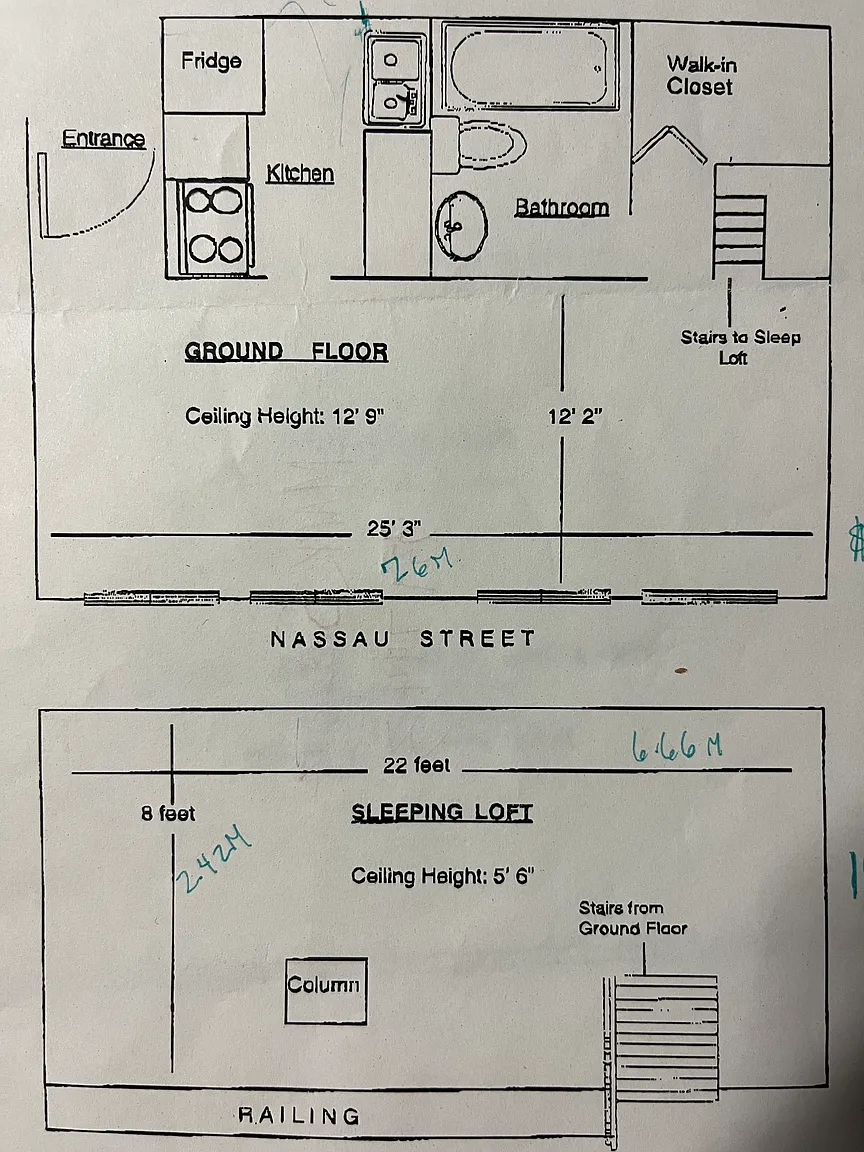 Fridge
Walk-in
Closet
Entrance
Kitchen
Bathroom
Stairs to Sleep
Loft
GROUND FLOOR
Ceiling Height: 12' 9"
12' 2"
25' 3"
NASSAU STREET
22 feet
6.66 M
8 feet
SLEEPING LOFT
2.42M
Ceiling Height: 5' 6"
Stairs from
Ground Floor
Column
RAILING